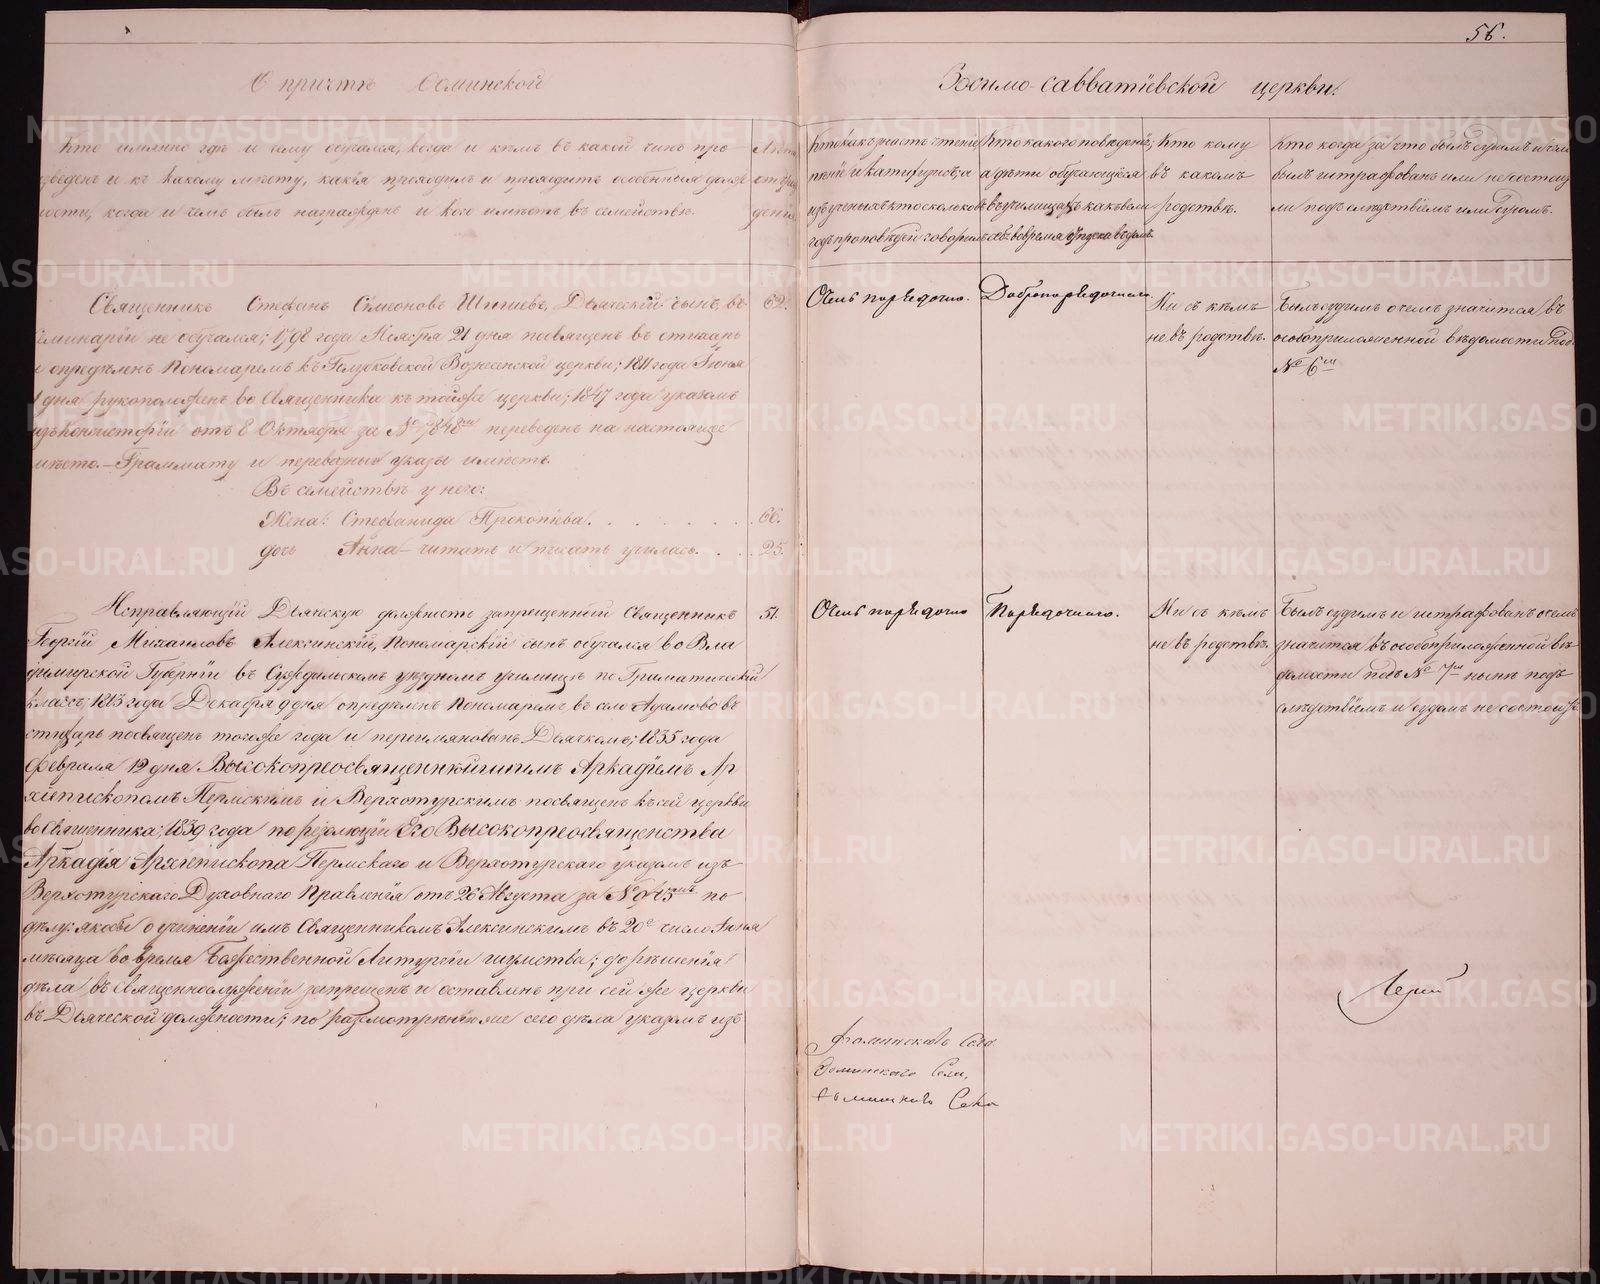 56.
О причтѣ Осминской Зосимо-Савватіевской церкви.
Кто имянно гдѣ и чему обучался, когда и кѣмъ въ какой чинъ про
изведенъ и къ какому мѣсту, какія проходилъ и проходитъ особенныя долж
ности, когда и чѣмъ былъ награжденъ и кого имѣетъ въ семействѣ.
Лѣта
отъ рож
денія
Кто какъ знаетъ чтеніе
пѣніе и катихизисъ, а
изъ ученыхъ кто сколько въ
годъ проповѣдей говорилъ
Кто какого поведенія,
а дѣти обучающіеся
въ училищахъ какъ вели
себя во время отпуска въ домъ.
Кто кому
въ какомъ
родствѣ.
Кто когда за что былъ судимъ и чѣм
былъ штрафованъ или не состоит
ли подъ слѣдствіемъ или судомъ.
Священникъ Стефанъ Симеоновъ Шишевъ, Дьяческій сынъ, въ
Семинаріи не обучался; 1798 года Ноября 21 дня посвященъ въ стихарь
и опредѣленъ Пономаремъ къ Вознесенской церкви; 1811 года Іюня
дня рукоположенъ во Священника къ той же церкви; 1847 года указомъ
изъ Консисторіи отъ 8 Октября за № 7848мъ переведенъ на настоящее
мѣсто. – Граммату и переводные указы имѣетъ.
Въ семействѣ у него:
Жена: Стефанида Прокопіева. . . . . . . . 66.
дочь Анна – читать и писать училась. . . . 25.
69.
Очень порядочно.
Добропорядочнаго
Ни съ кѣмъ
не въ родствѣ.
Былъ судимъ о чемъ значится въ
особоприложенной вѣдомости под
№ 6мъ
Исправляющій Дьячскую должность запрещенный Священникъ
Георгій Михаиловъ Алексинскій, Пономарскій сынъ обучался во Вла
димирской Губерніи въ Суздальскомъ уѣздномъ училищѣ по Граматической
классъ, 1813 года Декабря 9 дня опредѣленъ Пономаремъ въ село Адамово въ
стихарь посвященъ тогоже года и переимянованъ Дьячкомъ; 1835 года
Февраля 12 дня Высокопреосвященнѣйшимъ Аркадіемъ Ар
хіепископомъ Пермскимъ и Верхотурскимъ посвященъ къ сей церкви
во Священника; 1839 года по резолюціи Его Высокопреосвященства
Аркадія Архіепископа Пермскаго и Верхотурскаго указомъ изъ
Верхотурскаго Духовнаго Правленія отъ 26 Августа за № 945мъ по
дѣлу: якобы о учиненіи имъ Священникомъ Алексинскимъ въ 20е число Іюня
мѣсяца во время Божественной Литургіи шумства; до рѣшенія
дѣла, въ Священнослуженіи запрещенъ и оставленъ при сей же церкви
въ Дьяческой должности; по разсмотрѣніи же сего дѣла указомъ изъ
51.
Очень порядочно
Порядочнаго.
Ни съ кѣмъ
не въ родствѣ.
Былъ судимъ и штрафованъ о чемъ
значится въ особоприложенной вѣ
домости подъ № 7мъ нынѣ подъ
слѣдствіемъ и судомъ не состоитъ.
Осминскаго Села,
METRIKI.GASO-URAL.RU